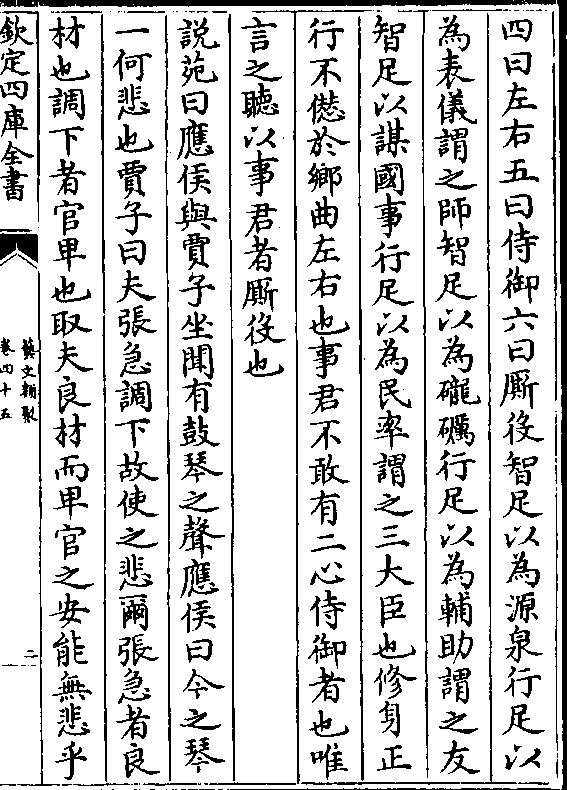 四曰左右五曰侍御六曰厮役智足以為源泉行足以
為表儀謂之師智足以為礲礪行足以為輔助謂之友
智足以謀國事行足以為民率謂之三大臣也修身正
行不愆於鄉曲左右也事君不敢有二心侍御者也唯
言之聽以事君者厮役也
説苑曰應侯與賈子坐聞有鼓琴之聲應侯曰今之琴
一何悲也賈子曰夫張急調下故使之悲爾張急者良
材也調下者官卑也取夫良材而卑官之安能無悲乎
欽定四庫全書
藝文類聚
卷四十五
二